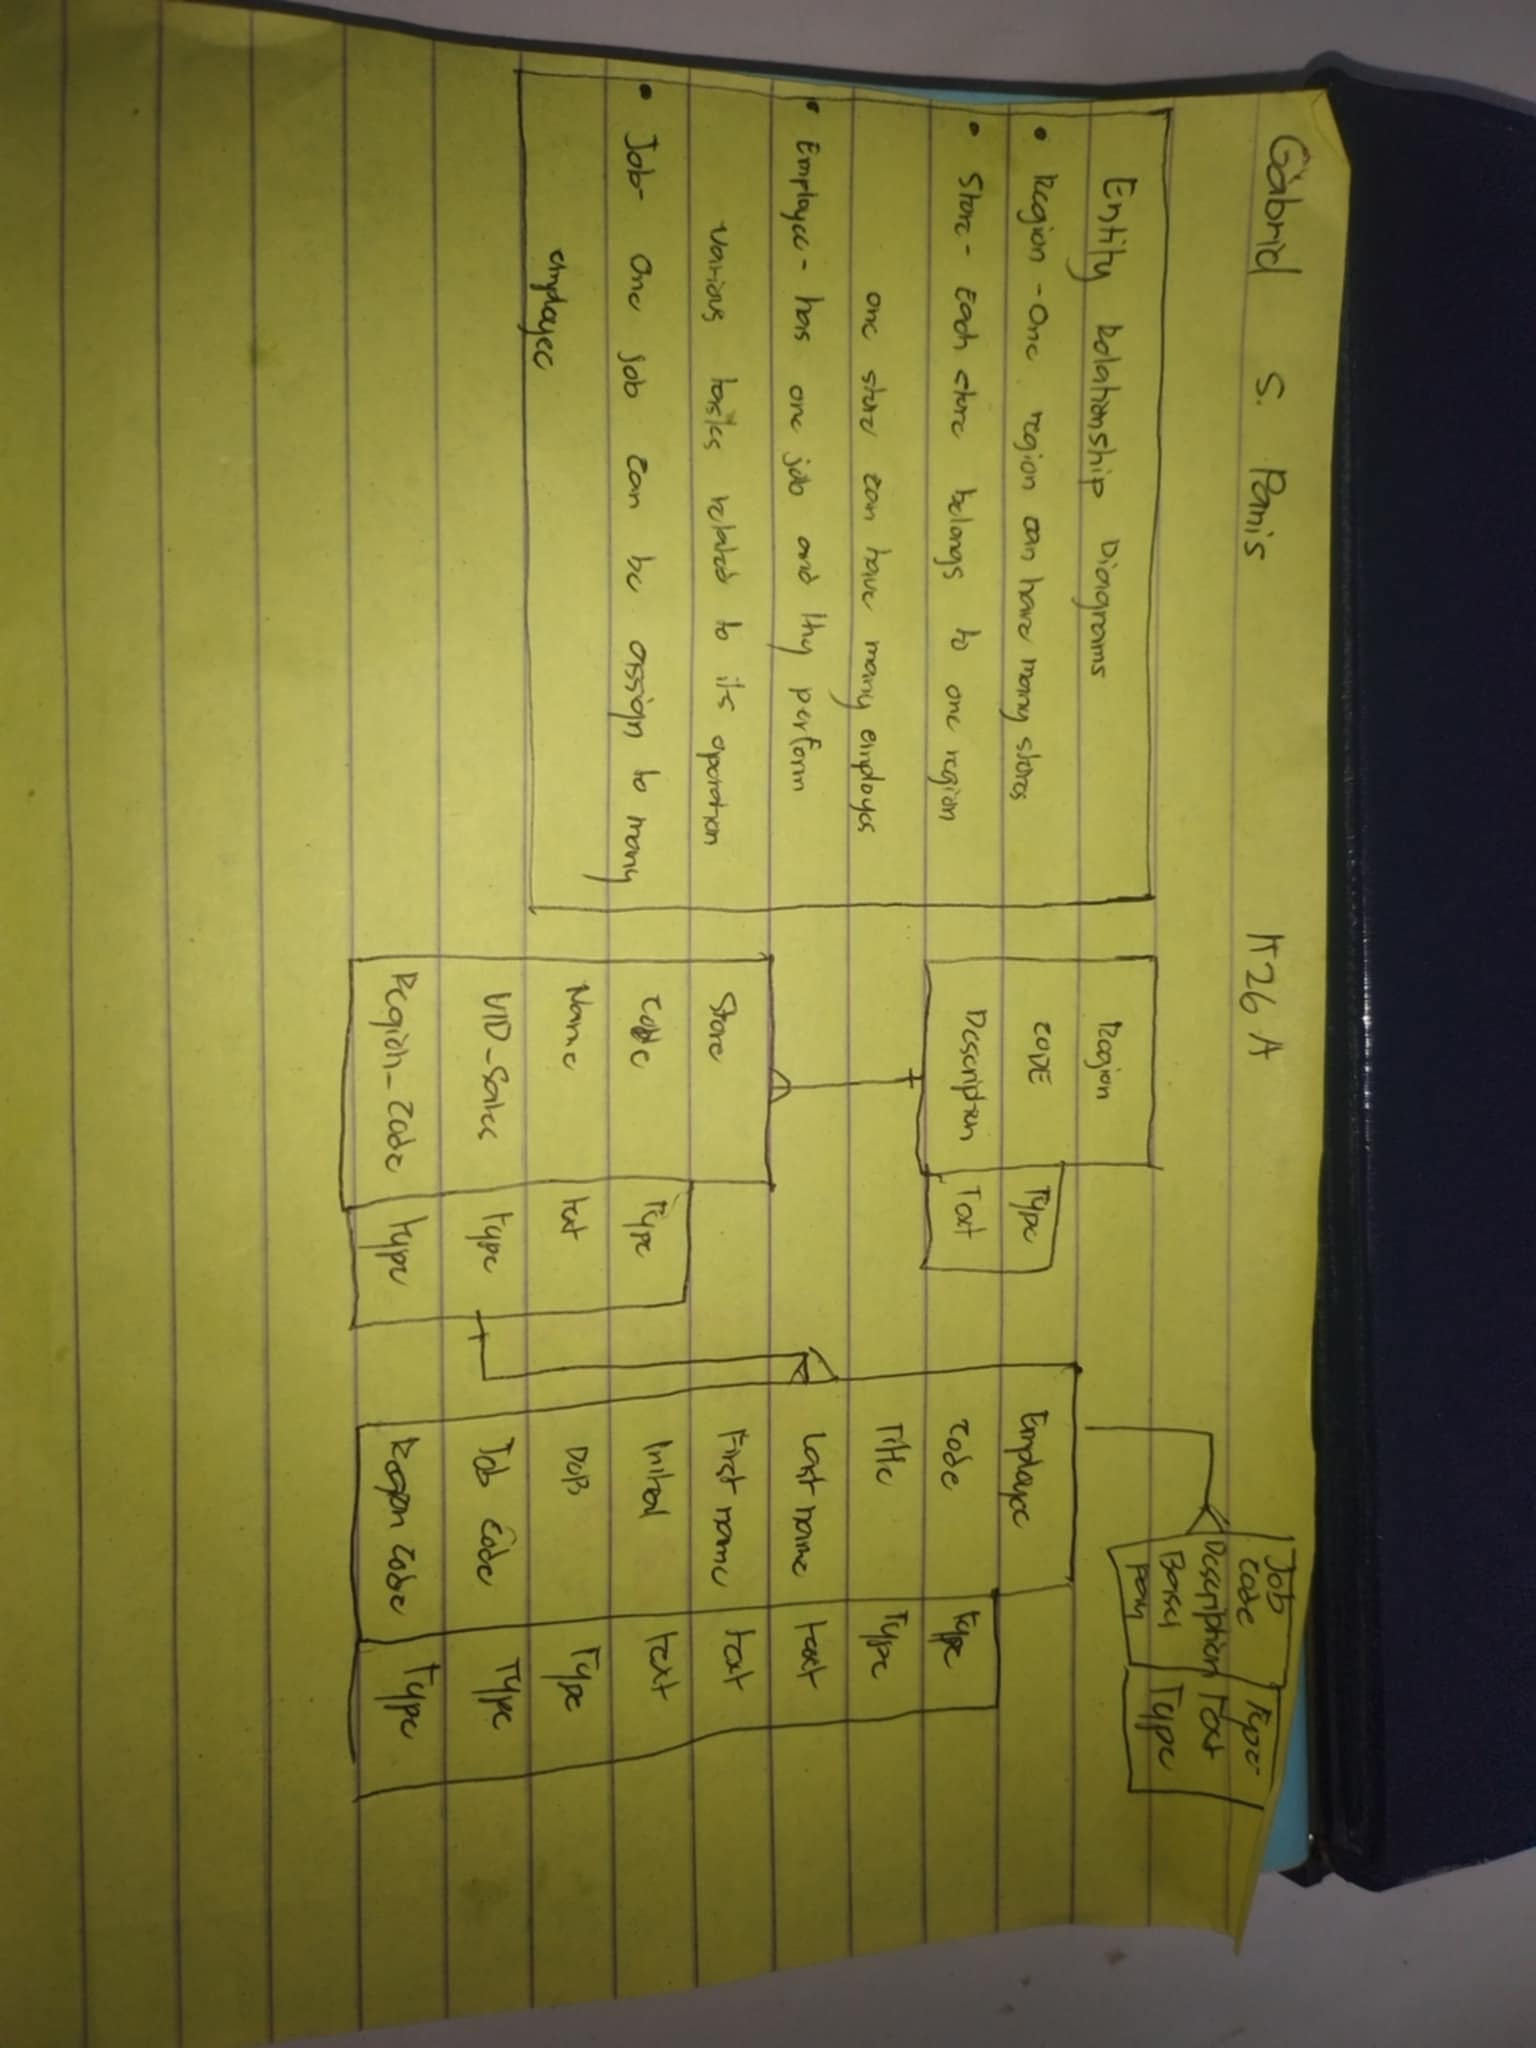 Gabriel S. Panis IT26A
Entity Relationship Diagrams
• Region - One region can have many stores
• Store - Each store belongs to one region
one store can have many employes
• Employee - has one job and thy perform
various tasks related to its operation
• Job - one job can be assign to many
employee
Region
CODE Type
Description Text
Store
Code Type
Name text
VID_Sales type
Region_Code type
Job
Code Type
Description Text
Type
Employee
Code type
Title Type
Last name text
First name text
Initial text
DOB Type
Job Code Type
Region code Type